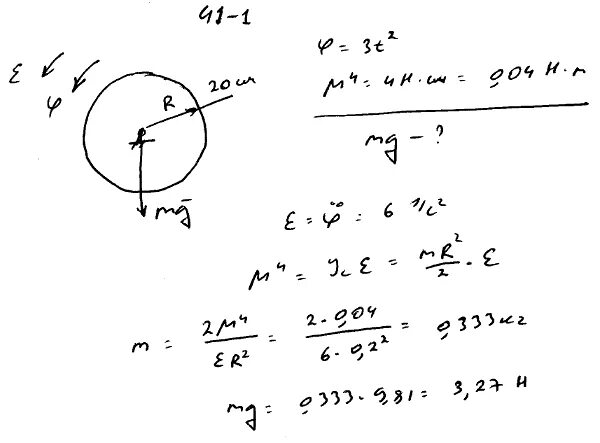 41-1
ε
φ
R
20 см
mḡ
φ = 3t²
Mᵘ = 4 Н·см = 0,04 Н·м
mg - ?
ε = φ̈ = 6 1/с²
Mᵘ = J_c ε = mR²/2 · ε
m = 2Mᵘ/εR² = 2·0,04/6·0,2² = 0,333 кг
mg = 0,333·9,81 = 3,27 Н